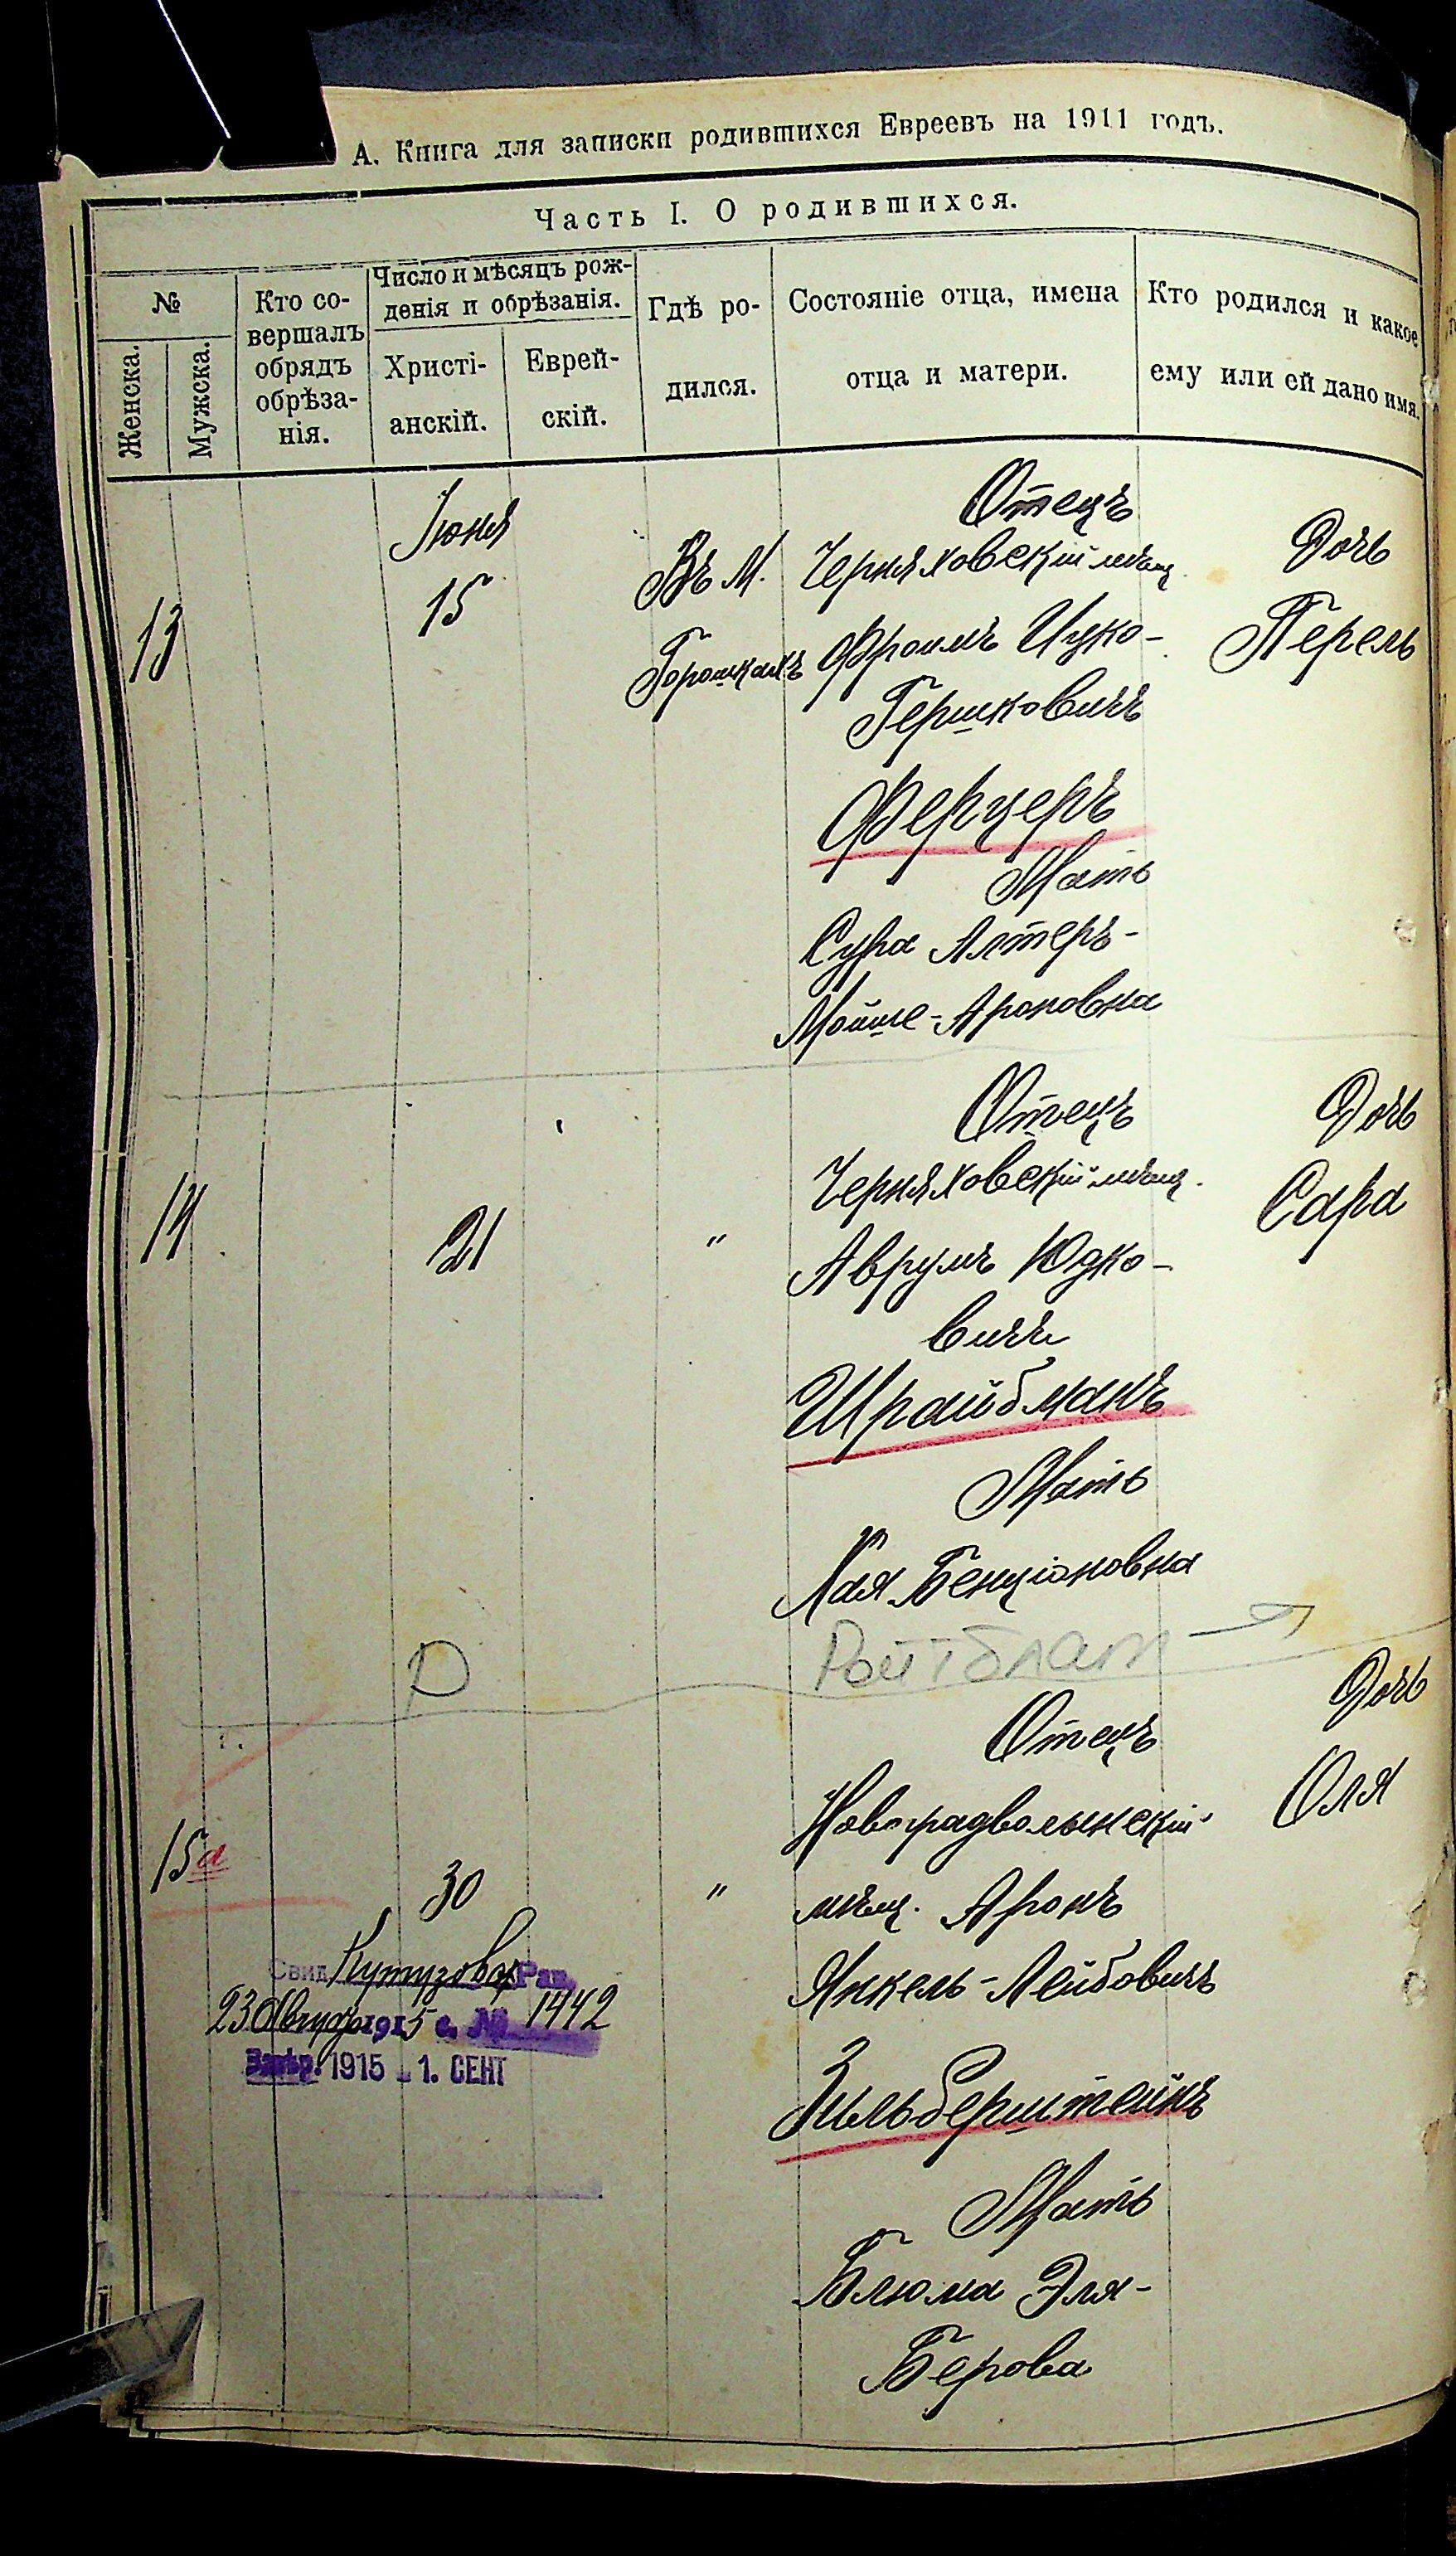 А. Книга для записки родившихся Евреевъ на 1911 годъ.
Часть I. О родившихся.
№
Женска.
Мужска.
Кто со-
вершалъ
обрядъ
обрѣза-
нія.
Число и мѣсяцъ рож-
денія и обрѣзанія.
Христі-
анскій.
Еврей-
скій.
Гдѣ ро-
дился.
Состояніе отца, имена
отца и матери.
Кто родился и какое
ему или ей дано имя.
13
Іюня
15
Въ М.
Горошкахъ
Отецъ
Черняховскій мѣщ.
Фроимъ Ицко-
Гершковичъ
Ферцеръ
Мать
Сура Алтеръ-
Мойше-Ароновна
Дочь
Перель
14
21
"
Отецъ
Черняховскій мѣщ.
Аврумъ Юдко-
вичъ
Шрайбманъ
Мать
Хая Бенціоновна
Ройтблат
Дочь
Сара
15а
30
"
Отецъ
Новоградволынскій
мѣщ. Аронъ
Янкель-Лейбовичъ
Зильберштейнъ
Мать
Блюма Эля-
Берова
Дочь
Оля
Свид. Кутузовск. Рав.
23 Августа 1915 г. № 1442
1915 - 1. СЕНТ